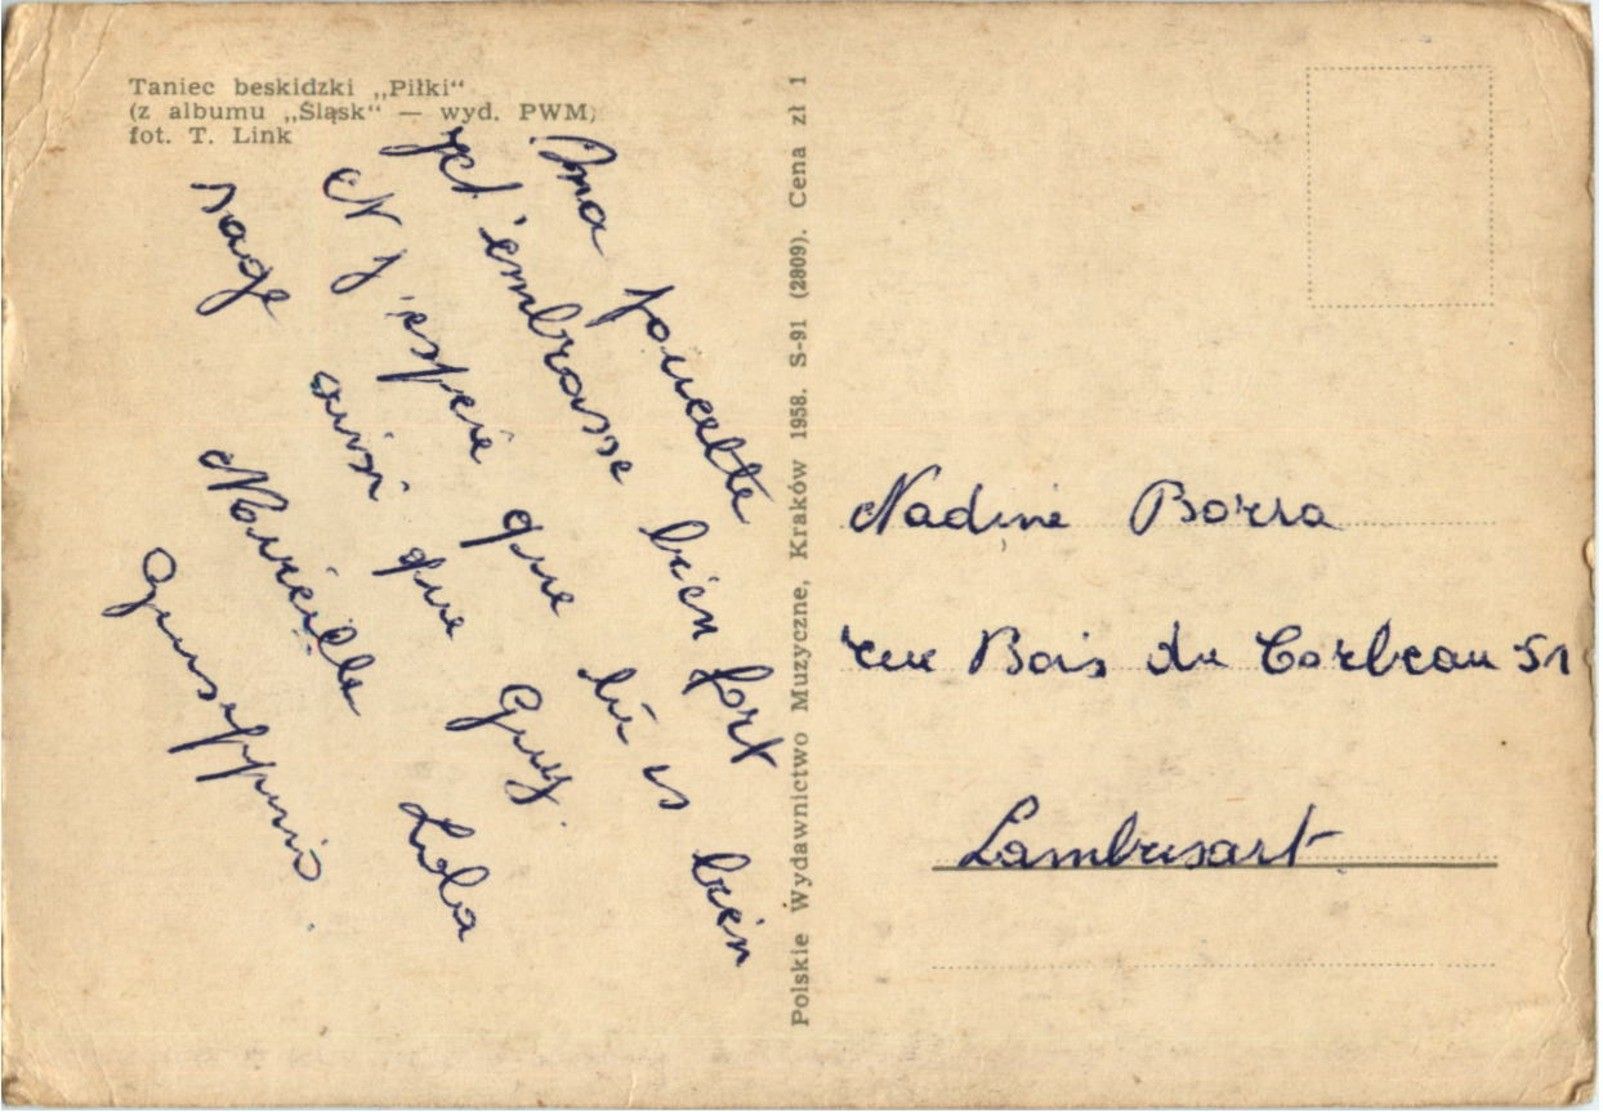 Taniec beskidzki „Piłki“
(z albumu „Śląsk“ — wyd. PWM)
fot. T. Link
Ma poucette
je t'embrasse bien fort
et j'espère que tu es bien
sage ainsi que Guy.
Mireille Lola
Giuseppino.
Polskie Wydawnictwo Muzyczne, Kraków 1958. S-91 (2809). Cena zł 1
Nadine Borra
rue Bois du Corbeau 51
Lambusart